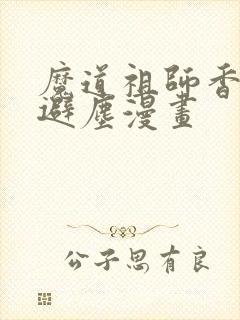 魔道祖師香
避塵漫畫
公子思有良